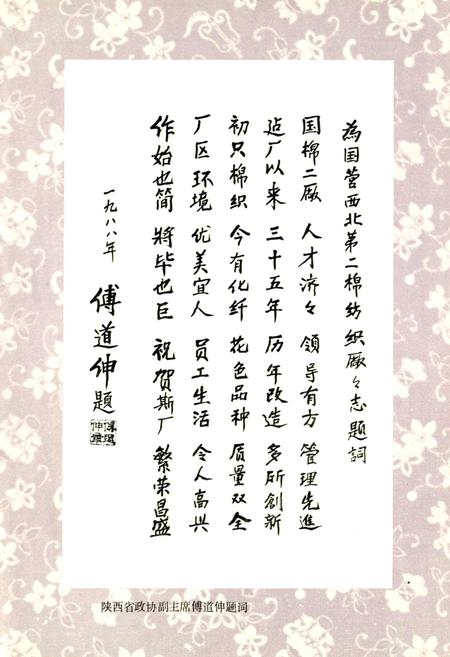 為国营西北第二棉纺织厰々志题詞
国棉二厰 人才济々 領导有方 管理先進
迠厂以来 三十五年 历年改造 多所創新
初只棉织 今有化纤 花色品种 质量双全
厂区环境 优美宜人 员工生活 令人高兴
作始也简 將毕也巨 祝贺斯厂 繁荣昌盛
一九八八年
傅道伸题
陕西省政协副主席傅道伸题词